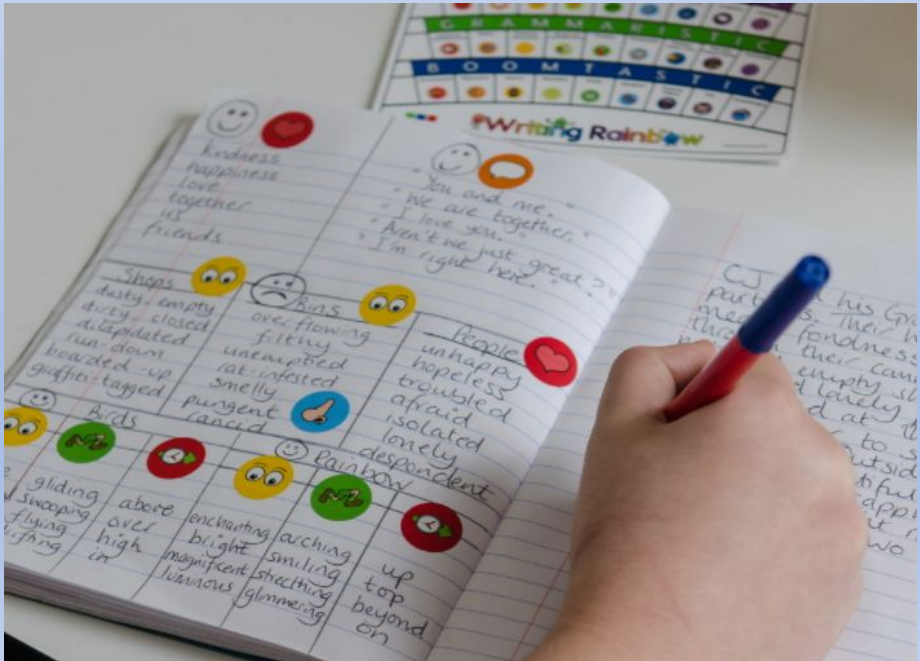 GRAMMARISTIC
BOOMTASTIC
Writing Rainbow
kindness
happiness
love
together
us
friends
"You and me."
"We are together."
"I love you."
"Aren't we just great?"
"I'm right here."
Shops
dusty-empty
dirty-closed
dilapidated
run-down
boarded-up
graffiti-tagged
Bins
overflowing
filthy
unemptied
rat-infested
smelly
pungent
rancid
People
unhappy
hopeless
troubled
afraid
isolated
lonely
despondent
Birds
gliding
swooping
flying
drifting
above
over
high
in
Rainbow
enchanting
bright
magnificent
luminous
arching
smiling
strecthing
glimmering
up
top
beyond
on
CJ his
Their
fondness
their
empty
lonely
at
to